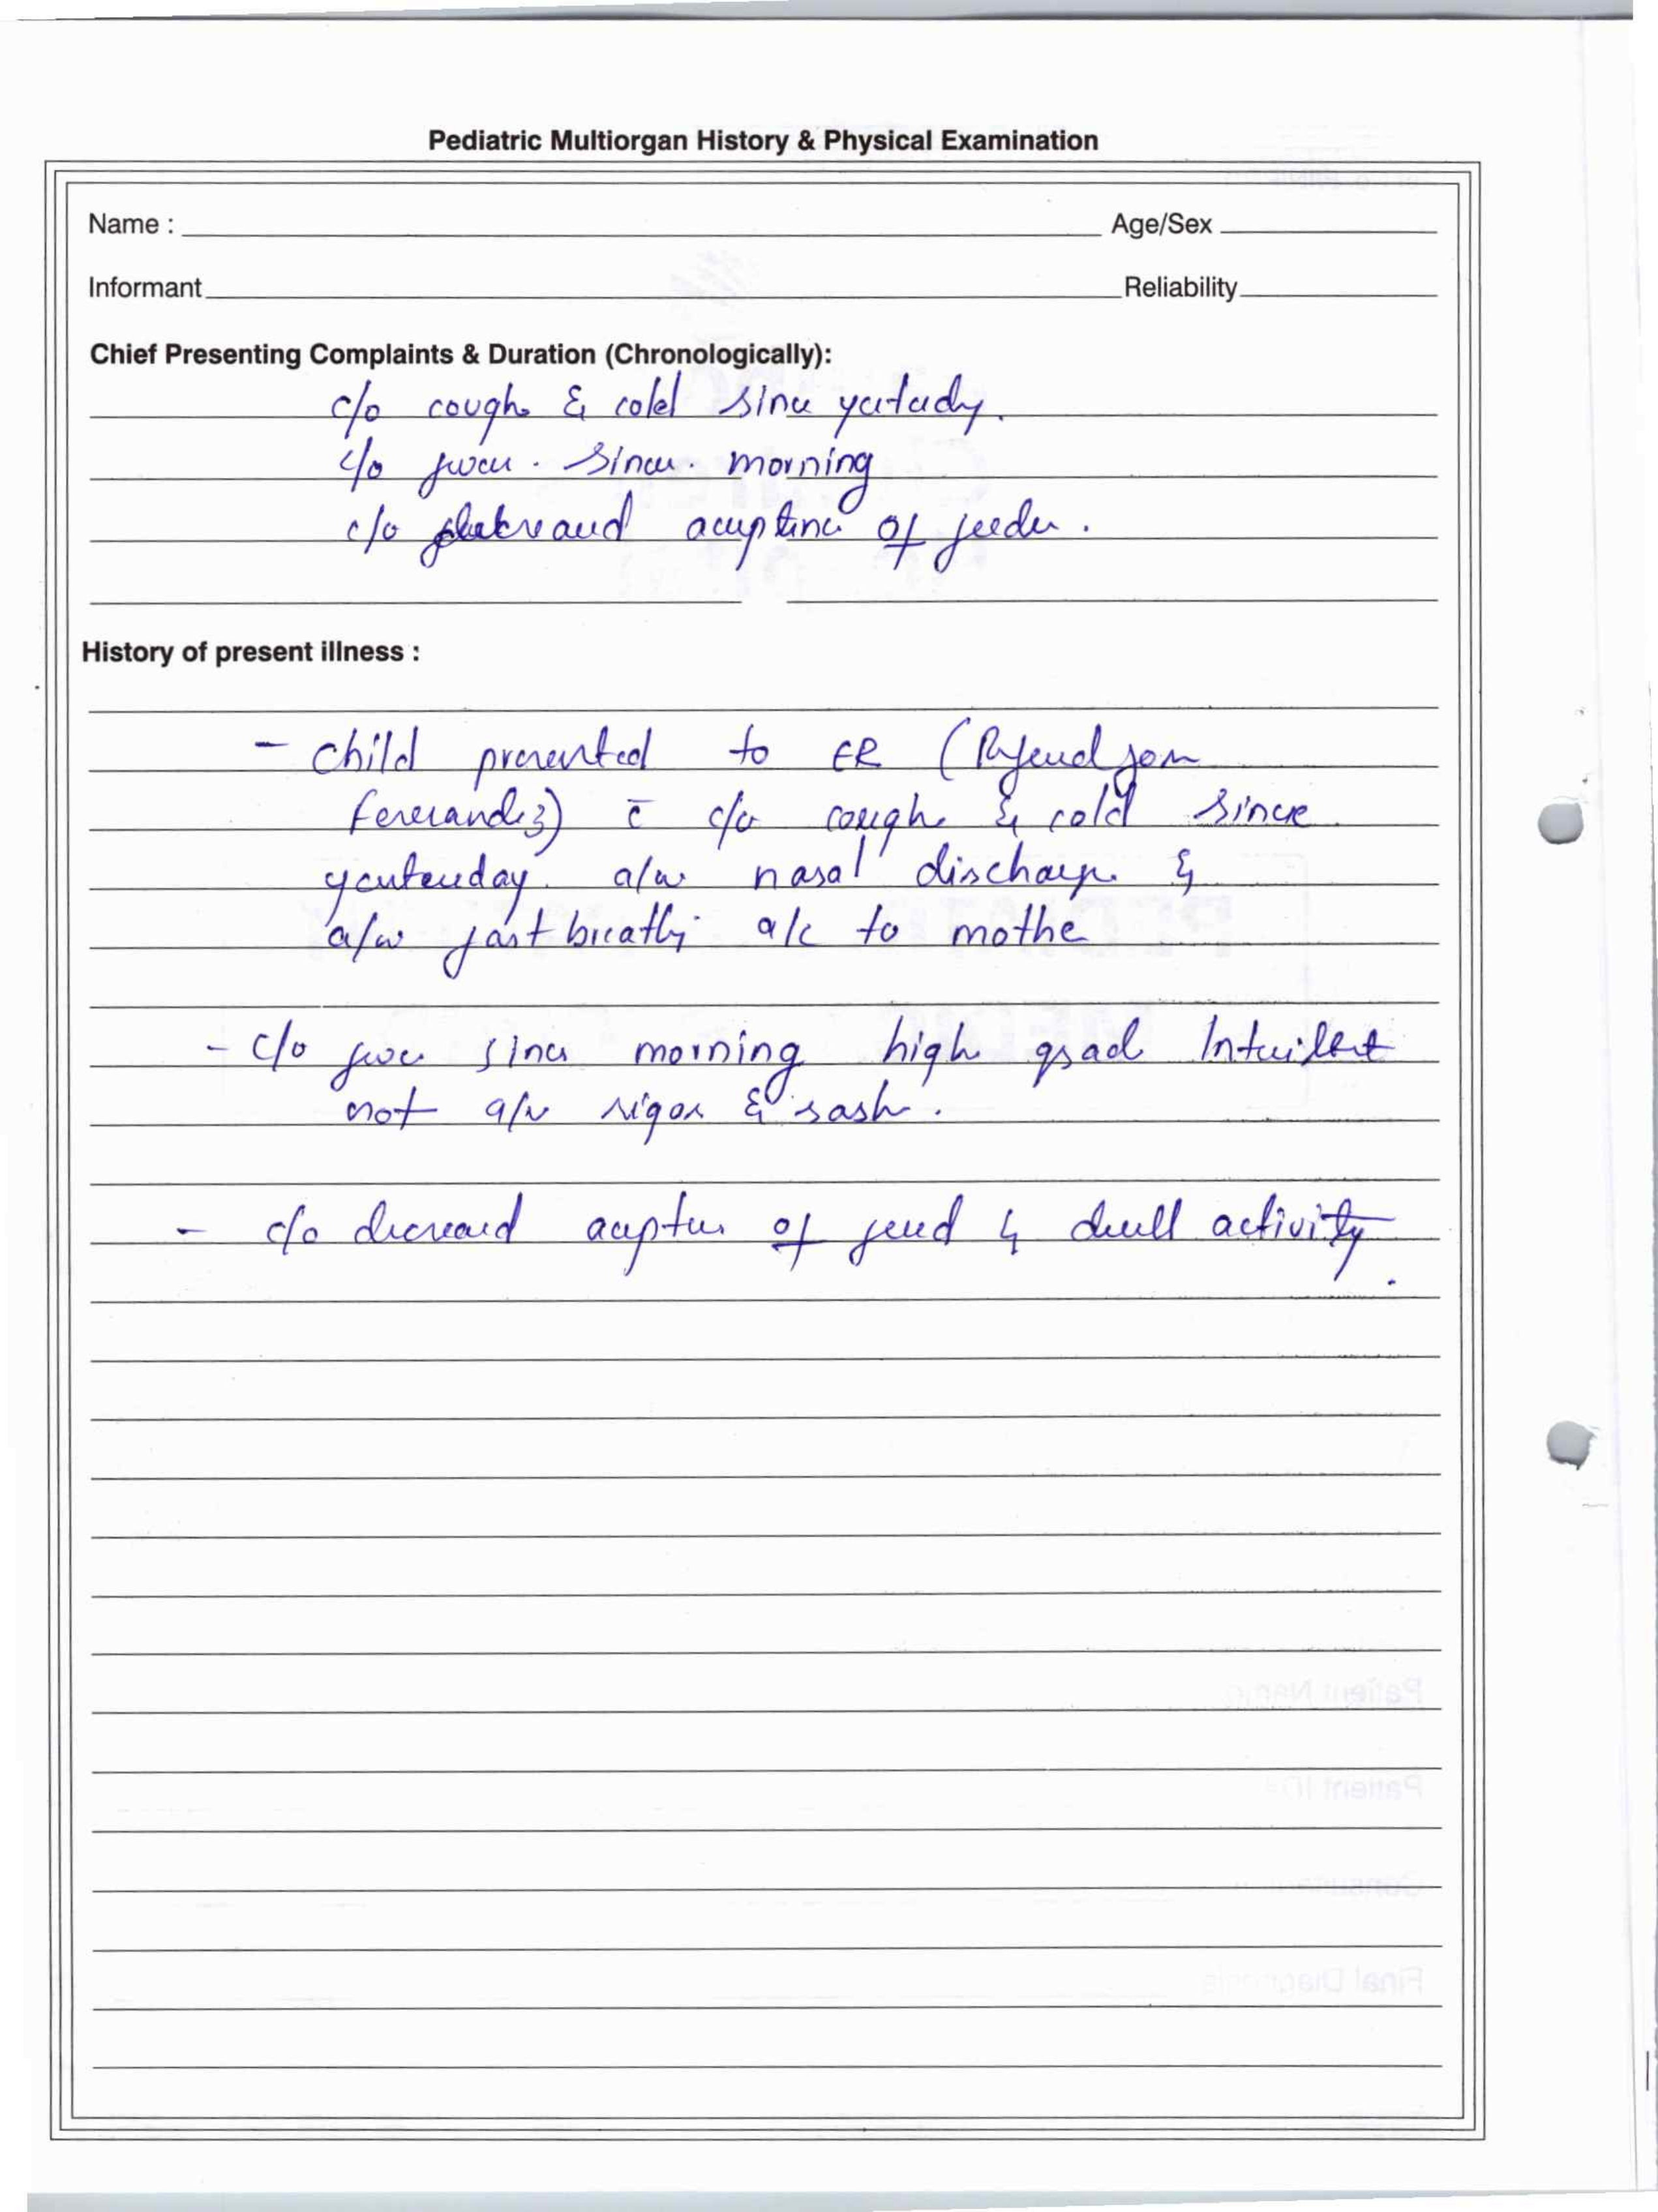 Pediatric Multiorgan History & Physical Examination
Name : Age/Sex
Informant Reliability
Chief Presenting Complaints & Duration (Chronologically):
c/o cough & cold since yesterday.
c/o fever. since. morning
c/o decreased acceptance of feeds.
History of present illness :
- child presented to ER (Referred from
Fernandez) c̄ c/o cough & cold since
yesterday. a/w nasal discharge &
a/w fast breathing a/c to mothe
- c/o fever since morning high grad Intermittent
not a/w rigor & rash.
- c/o decreased acceptance of feed & dull activity.